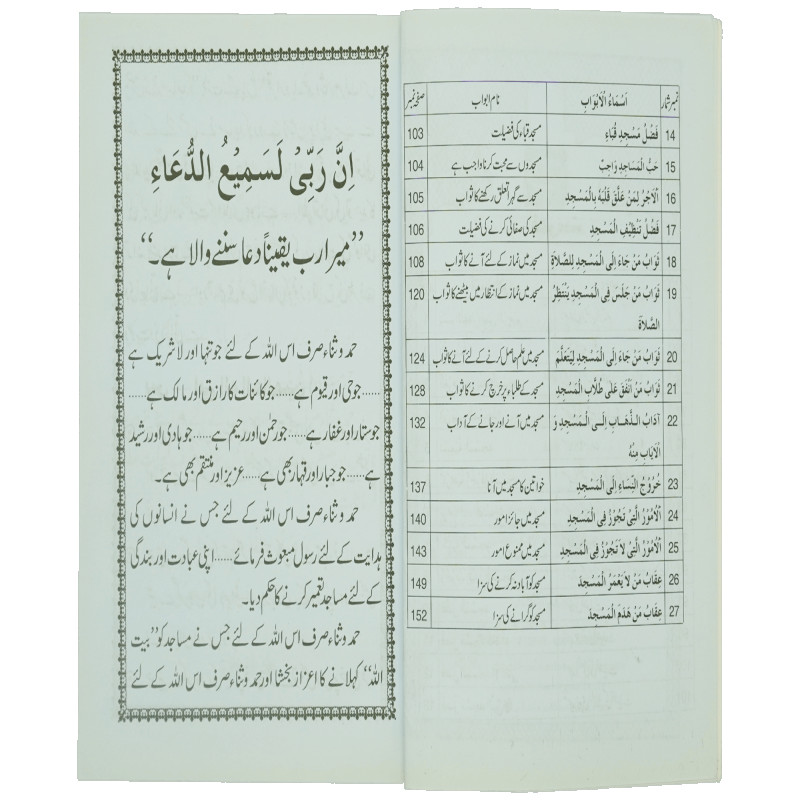 نمبر شمار | اَسْمَاءُ الْاَبْوَابِ | نام ابواب | صفحہ نمبر
14 | فَضْلُ مَسْجِدِ قُبَاءٍ | مسجد قباء کی فضیلت | 103
15 | حُبُّ الْمَسَاجِدِ وَاجِبٌ | مسجدوں سے محبت کرنا واجب ہے | 104
16 | اَلْاَجْرُ لِمَنْ عَلَّقَ قَلْبَهُ بِالْمَسْجِدِ | مسجد سے گہرا تعلق رکھنے کا ثواب | 105
17 | فَضْلُ تَنْظِيْفِ الْمَسْجِدِ | مسجد کی صفائی کرنے کی فضیلت | 106
18 | ثَوَابُ مَنْ جَاءَ اِلَى الْمَسْجِدِ لِلصَّلَاةِ | مسجد میں نماز کے لئے آنے کا ثواب | 108
19 | ثَوَابُ مَنْ جَلَسَ فِى الْمَسْجِدِ يَنْتَظِرُ | مسجد میں نماز کے انتظار میں بیٹھنے کا ثواب | 120
الصَّلَاةَ
20 | ثَوَابُ مَنْ جَاءَ اِلَى الْمَسْجِدِ لِيَتَعَلَّمَ | مسجد میں علم حاصل کرنے کے لئے آنے کا ثواب | 124
21 | ثَوَابُ مَنْ اَنْفَقَ عَلٰى طُلَّابِ الْمَسْجِدِ | مسجد کے طلباء پر خرچ کرنے کا ثواب | 128
22 | آدَابُ الذَّهَابِ اِلَى الْمَسْجِدِ وَ | مسجد میں آنے اور جانے کے آداب | 132
الْاِيَابِ مِنْهُ
23 | خُرُوْجُ النِّسَاءِ اِلَى الْمَسْجِدِ | خواتین کا مسجد میں آنا | 137
24 | اَلْاُمُوْرُ الَّتِىْ تَجُوْزُ فِى الْمَسْجِدِ | مسجد میں جائز امور | 140
25 | اَلْاُمُوْرُ الَّتِىْ لَا تَجُوْزُ فِى الْمَسْجِدِ | مسجد میں ممنوع امور | 143
26 | عِقَابُ مَنْ لَا يَعْمُرُ الْمَسْجِدَ | مسجد کو آباد نہ کرنے کی سزا | 149
27 | عِقَابُ مَنْ هَدَمَ الْمَسْجِدَ | مسجد کو گرانے کی سزا | 152
اِنَّ رَبِّىْ لَسَمِيْعُ الدُّعَاءِ
”میرا رب یقیناً دعا سننے والا ہے۔“
حمد و ثناء صرف اس اللہ کے لئے جو تنہا اور لا شریک ہے
......جو حی اور قیوم ہے......جو کائنات کا رازق اور مالک ہے......
جو ستار اور غفار ہے......جو رحمٰن اور رحیم ہے......جو ہادی اور رشید
ہے......جو جبار اور قہار بھی ہے......عزیز اور منتقم بھی ہے۔
حمد و ثناء صرف اس اللہ کے لئے جس نے انسانوں کی
ہدایت کے لئے رسول مبعوث فرمائے......اپنی عبادت اور بندگی
کے لئے مساجد تعمیر کرنے کا حکم دیا۔
حمد و ثناء صرف اس اللہ کے لئے جس نے مساجد کو ”بیت
اللہ“ کہلانے کا اعزاز بخشا اور حمد و ثناء صرف اس اللہ کے لئے